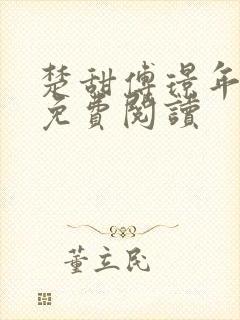 楚甜傅璟年
免費閱讀
董立民